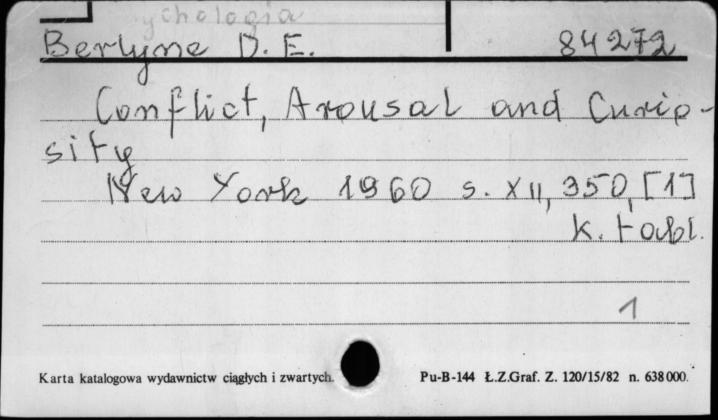 ychologia
Berlyne D. E. 84272
Conflict, Arousal and Curio-
sity
New York 1960 s. XII, 350, [1]
k. tabl.
1
Karta katalogowa wydawnictw ciągłych i zwartych. Pu-B-144 Ł.Z.Graf. Z. 120/15/82 n. 638000.